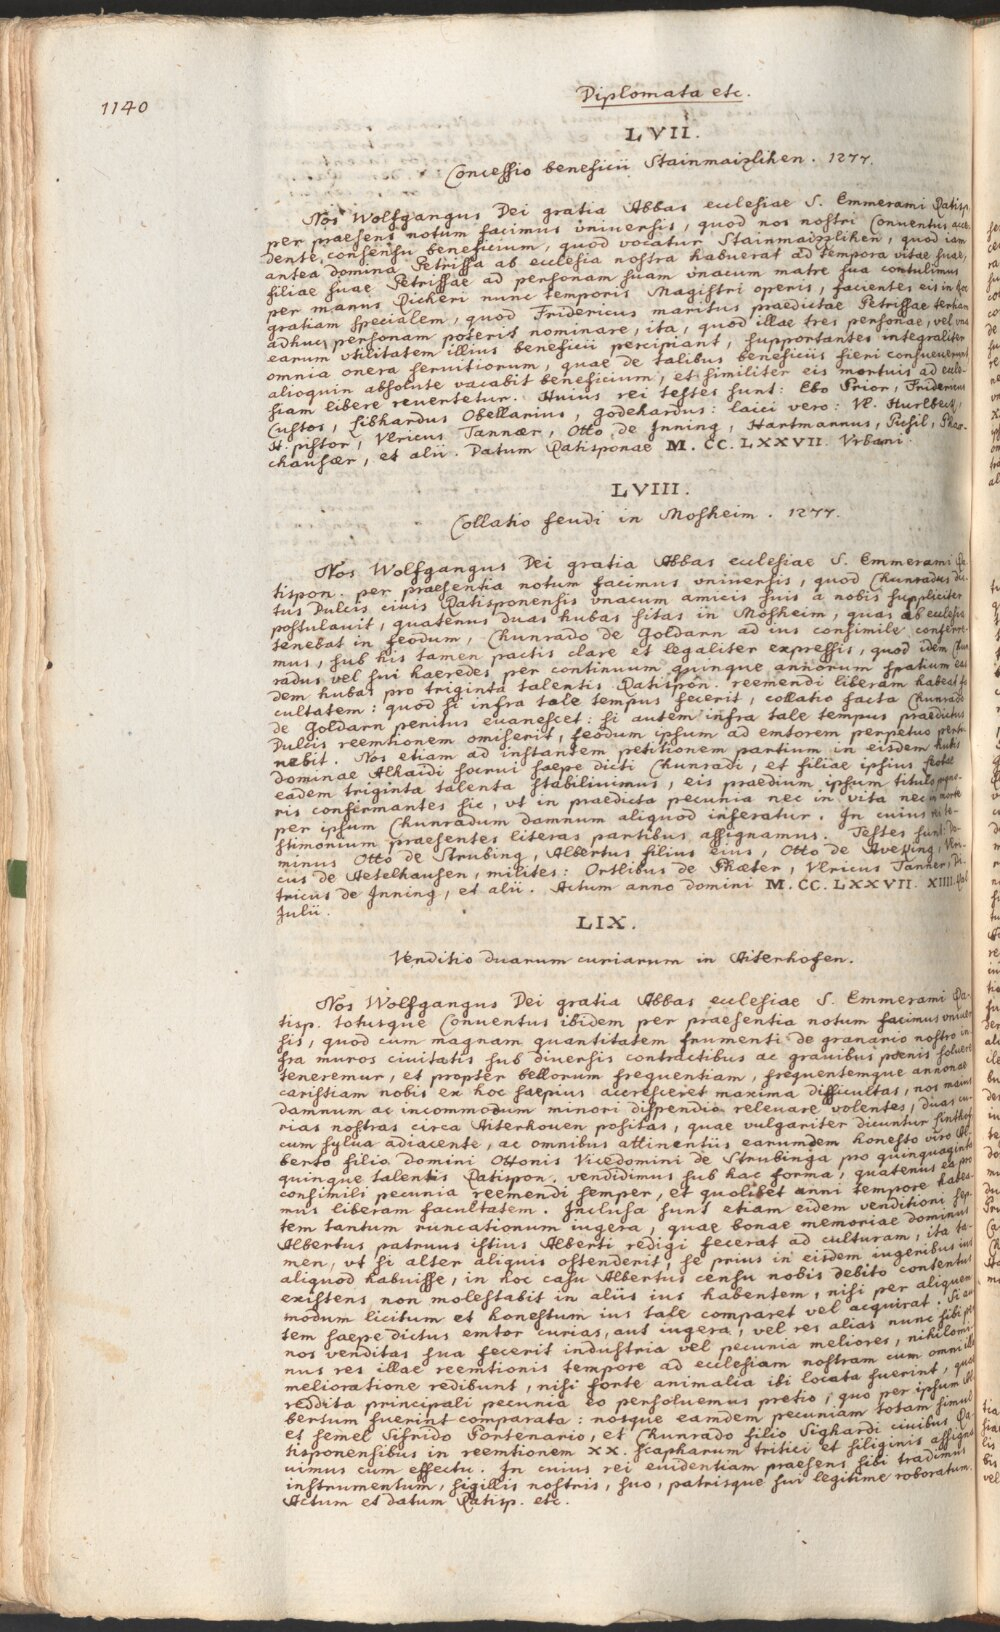 1140
Diplomata etc.
LVII.
Concessio beneficii Stainmaizlihen. 1277.
Nos Wolfgangus Dei gratia Abbas ecclesiae S. Emmerami Ratisp.
per praesens notum facimus vniuersis, quod nos nostri Conuentus acce-
dente consensu beneficium, quod vocatur Stainmaizlihen, quod iam
antea domina Petrissa ab ecclesia nostra habuerat ad tempora vitae suae,
filiae suae Petrissae ad personam suam vnacum matre sua contulimus
per manus Richeri nunc temporis Magistri operis, facientes eis in hoc
gratiam specialem, quod Fridericus maritus praedictae Petrissae tertiam
adhuc personam poterit nominare, ita, quod illae tres personae, vel vna
earum vtilitatem illius beneficii percipiant, supportantes integraliter
omnia onera seruitiorum, quae de talibus beneficiis fieri consueuerunt
alioquin absolute vacabit beneficium, et similiter eis mortuis ad eccle-
siam libere reuertetur. Huius rei testes sunt: Ebo Prior, Fridericus
Custos, Libhardus Obellarius, Godehardus: laici vero: Vl. Hurlbeis,
H. pistor, Vlricus Tannær, Otto de Inning, Hartmannus, Pusil,
chausær, et alii. Datum Ratisponae M. CC. LXXVII. Vrbani.
LVIII.
Collatio feudi in Mosheim. 1277.
Nos Wolfgangus Dei gratia Abbas ecclesiae S. Emmerami Ra-
tispon. per praesentia notum facimus vniuersis, quod Chunradus dic-
tus Dulcis ciuis Ratisponensis vnacum amicis suis a nobis suppliciter
postulauit, quatenus duas hubas sitas in Mosheim, quas ab ecclesia
tenebat in feodum, Chunrado de Goldarn ad ius consimile conferre-
mus, sub his tamen pactis clare et legaliter expressis, quod idem Chun-
radus vel sui haeredes per continuum quinque annorum spatium eas-
dem hubas pro triginta talentis Ratispon. reemendi liberam habeat fa-
cultatem: quod si infra tale tempus fecerit, collatio facta Chunrado
de Goldarn penitus euanescet: si autem infra tale tempus praedictus
Dulcis reemtionem omiserit, feodum ipsum ad emtorem perpetuo perti-
nebit. Nos etiam ad instantem petitionem partium in eisdem hubis
dominae Alhaidi socrui saepe dicti Chunradi, et filiae ipsius
eadem triginta talenta stabiliuimus, eis praedium ipsum titulo pigno-
ris confirmantes sic, vt in praedicta pecunia nec in vita nec in morte
per ipsum Chunradum damnum aliquod inferatur. In cuius rei te-
stimonium praesentes literas partibus assignamus. Testes sunt: Do-
minus Otto de Strubing, Albertus filius eius, Otto de Aveking, Vlri-
cus de Aetelhausen, milites: Ortlibus de Phæter, Vlricus Tanner, Di-
tricus de Inning, et alii. Actum anno domini M. CC. LXXVII. XIIII. Kal
Julii.
LIX.
Venditio duarum curiarum in Aiterhofen.
Nos Wolfgangus Dei gratia Abbas ecclesiae S. Emmerami Ra-
tisp. totusque Conuentus ibidem per praesentia notum facimus vniuer-
sis, quod cum magnam quantitatem frumenti de granario nostro in-
fra muros ciuitatis sub diuersis contractibus ac grauibus poenis soluere
teneremur, et propter bellorum frequentiam, frequentemque annonae
caristiam nobis ex hoc saepius accresceret maxima difficultas, nos maius
damnum ac incommodum minori dispendio releuare volentes, duas cu-
rias nostras circa Aiterhouen positas, quae vulgariter dicuntur Sinthof
cum sylua adiacente, ac omnibus attinentiis earumdem honesto viro Al-
berto filio domini Ottonis Vicedomini de Strubinga pro quinquaginta
quinque talentis Ratispon. vendidimus sub hac forma, quatenus ea pro
consimili pecunia reemendi semper, et quolibet anni tempore habea-
mus liberam facultatem. Inclusa sunt etiam eidem venditioni sep-
tem tantum runcationum iugera, quae bonae memoriae dominus
Albertus patruus istius Alberti redigi fecerat ad culturam, ita ta-
men, vt si alter aliquis ostenderit, se prius in eisdem iugeribus ius
aliquod habuisse, in hoc casu Albertus censu nobis debito contentus
existens non molestabit in aliis ius habentem, nisi per aliquem
modum licitum et honestum ius tale comparet vel acquirat. Si au-
tem saepe dictus emtor curias, aut iugera, vel res alias nunc sibi per
nos venditas sua fecerit industria vel pecunia meliores, nihilomi-
nus res illae reemtionis tempore ad ecclesiam nostram cum omni illa
melioratione redibunt, nisi forte animalia ibi locata fuerint, quae
reddita principali pecunia eo persoluemus pretio, quo per ipsum Al-
bertum fuerint comparata: nosque eamdem pecuniam totam simul
et semel Sifrido Portenario, et Chunrado filio Sighardi ciuibus Ra-
tisponensibus in reemtionem XX. scapharum tritici et siliginis assigna-
uimus cum effectu. In cuius rei euidentiam praesens sibi tradimus
instrumentum, sigillis nostris, suo, patrisque sui legitime roboratum.
Actum et datum Ratisp. etc.